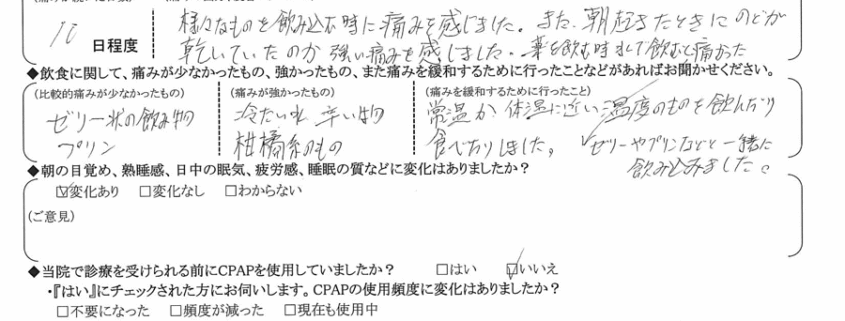 10 日程度
様々なものを飲み込む時に痛みを感じました。また、朝起きたときにのどが
乾いていたのか強い痛みを感じました。薬を飲む時 飲むと痛かった
◆飲食に関して、痛みが少なかったもの、強かったもの、また痛みを緩和するために行ったことなどがあればお聞かせください。
(比較的痛みが少なかったもの)
ゼリー状の飲み物
プリン
(痛みが強かったもの)
冷たい水 辛い物
柑橘系のもの
(痛みを緩和するために行ったこと)
常温か体温に近い温度のものを飲んだり
食べたりしました。
ゼリーやプリンなどと一緒に
飲み込みました。
◆朝の目覚め、熟睡感、日中の眠気、疲労感、睡眠の質などに変化はありましたか?
☑変化あり □変化なし □わからない
(ご意見)
◆当院で診療を受けられる前にCPAPを使用していましたか? □はい ☑いいえ
・『はい』にチェックされた方にお伺いします。CPAPの使用頻度に変化はありましたか?
□不要になった □頻度が減った □現在も使用中